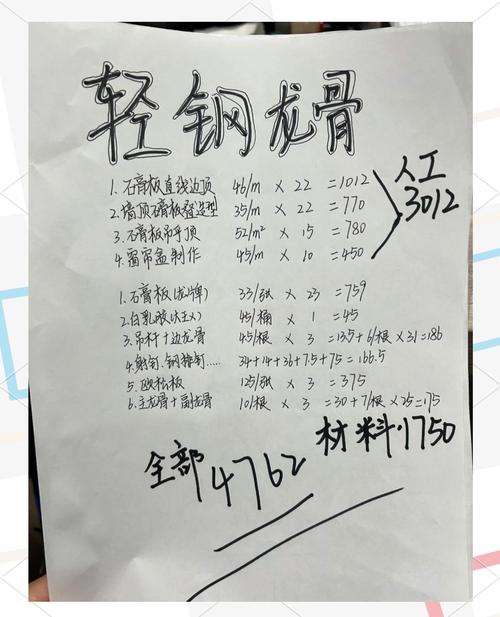 轻钢龙骨
1. 石膏板直线边顶 46/m × 22 = 1012
2. 墙顶石膏板叠造型 35/m × 22 = 770
3. 石膏板吊平顶 52/m² × 15 = 780
4. 窗帘盒制作 45/m × 10 = 450
人工
3012
1. 石膏板(龙牌) 33/张 × 23 = 759
2. 白乳胶 45/桶 × 1 = 45
3. 吊杆+边龙骨 45/根 × 3 = 135+6/根×31=186
4. 射钉、钢排钉…… 34+14+36+7.5+75=166.5
5. 欧松板 125/张 × 3 = 375
6. 主龙骨+副龙骨 10/根 × 3 =30+7/根×25=175
材料:1750
全部4762